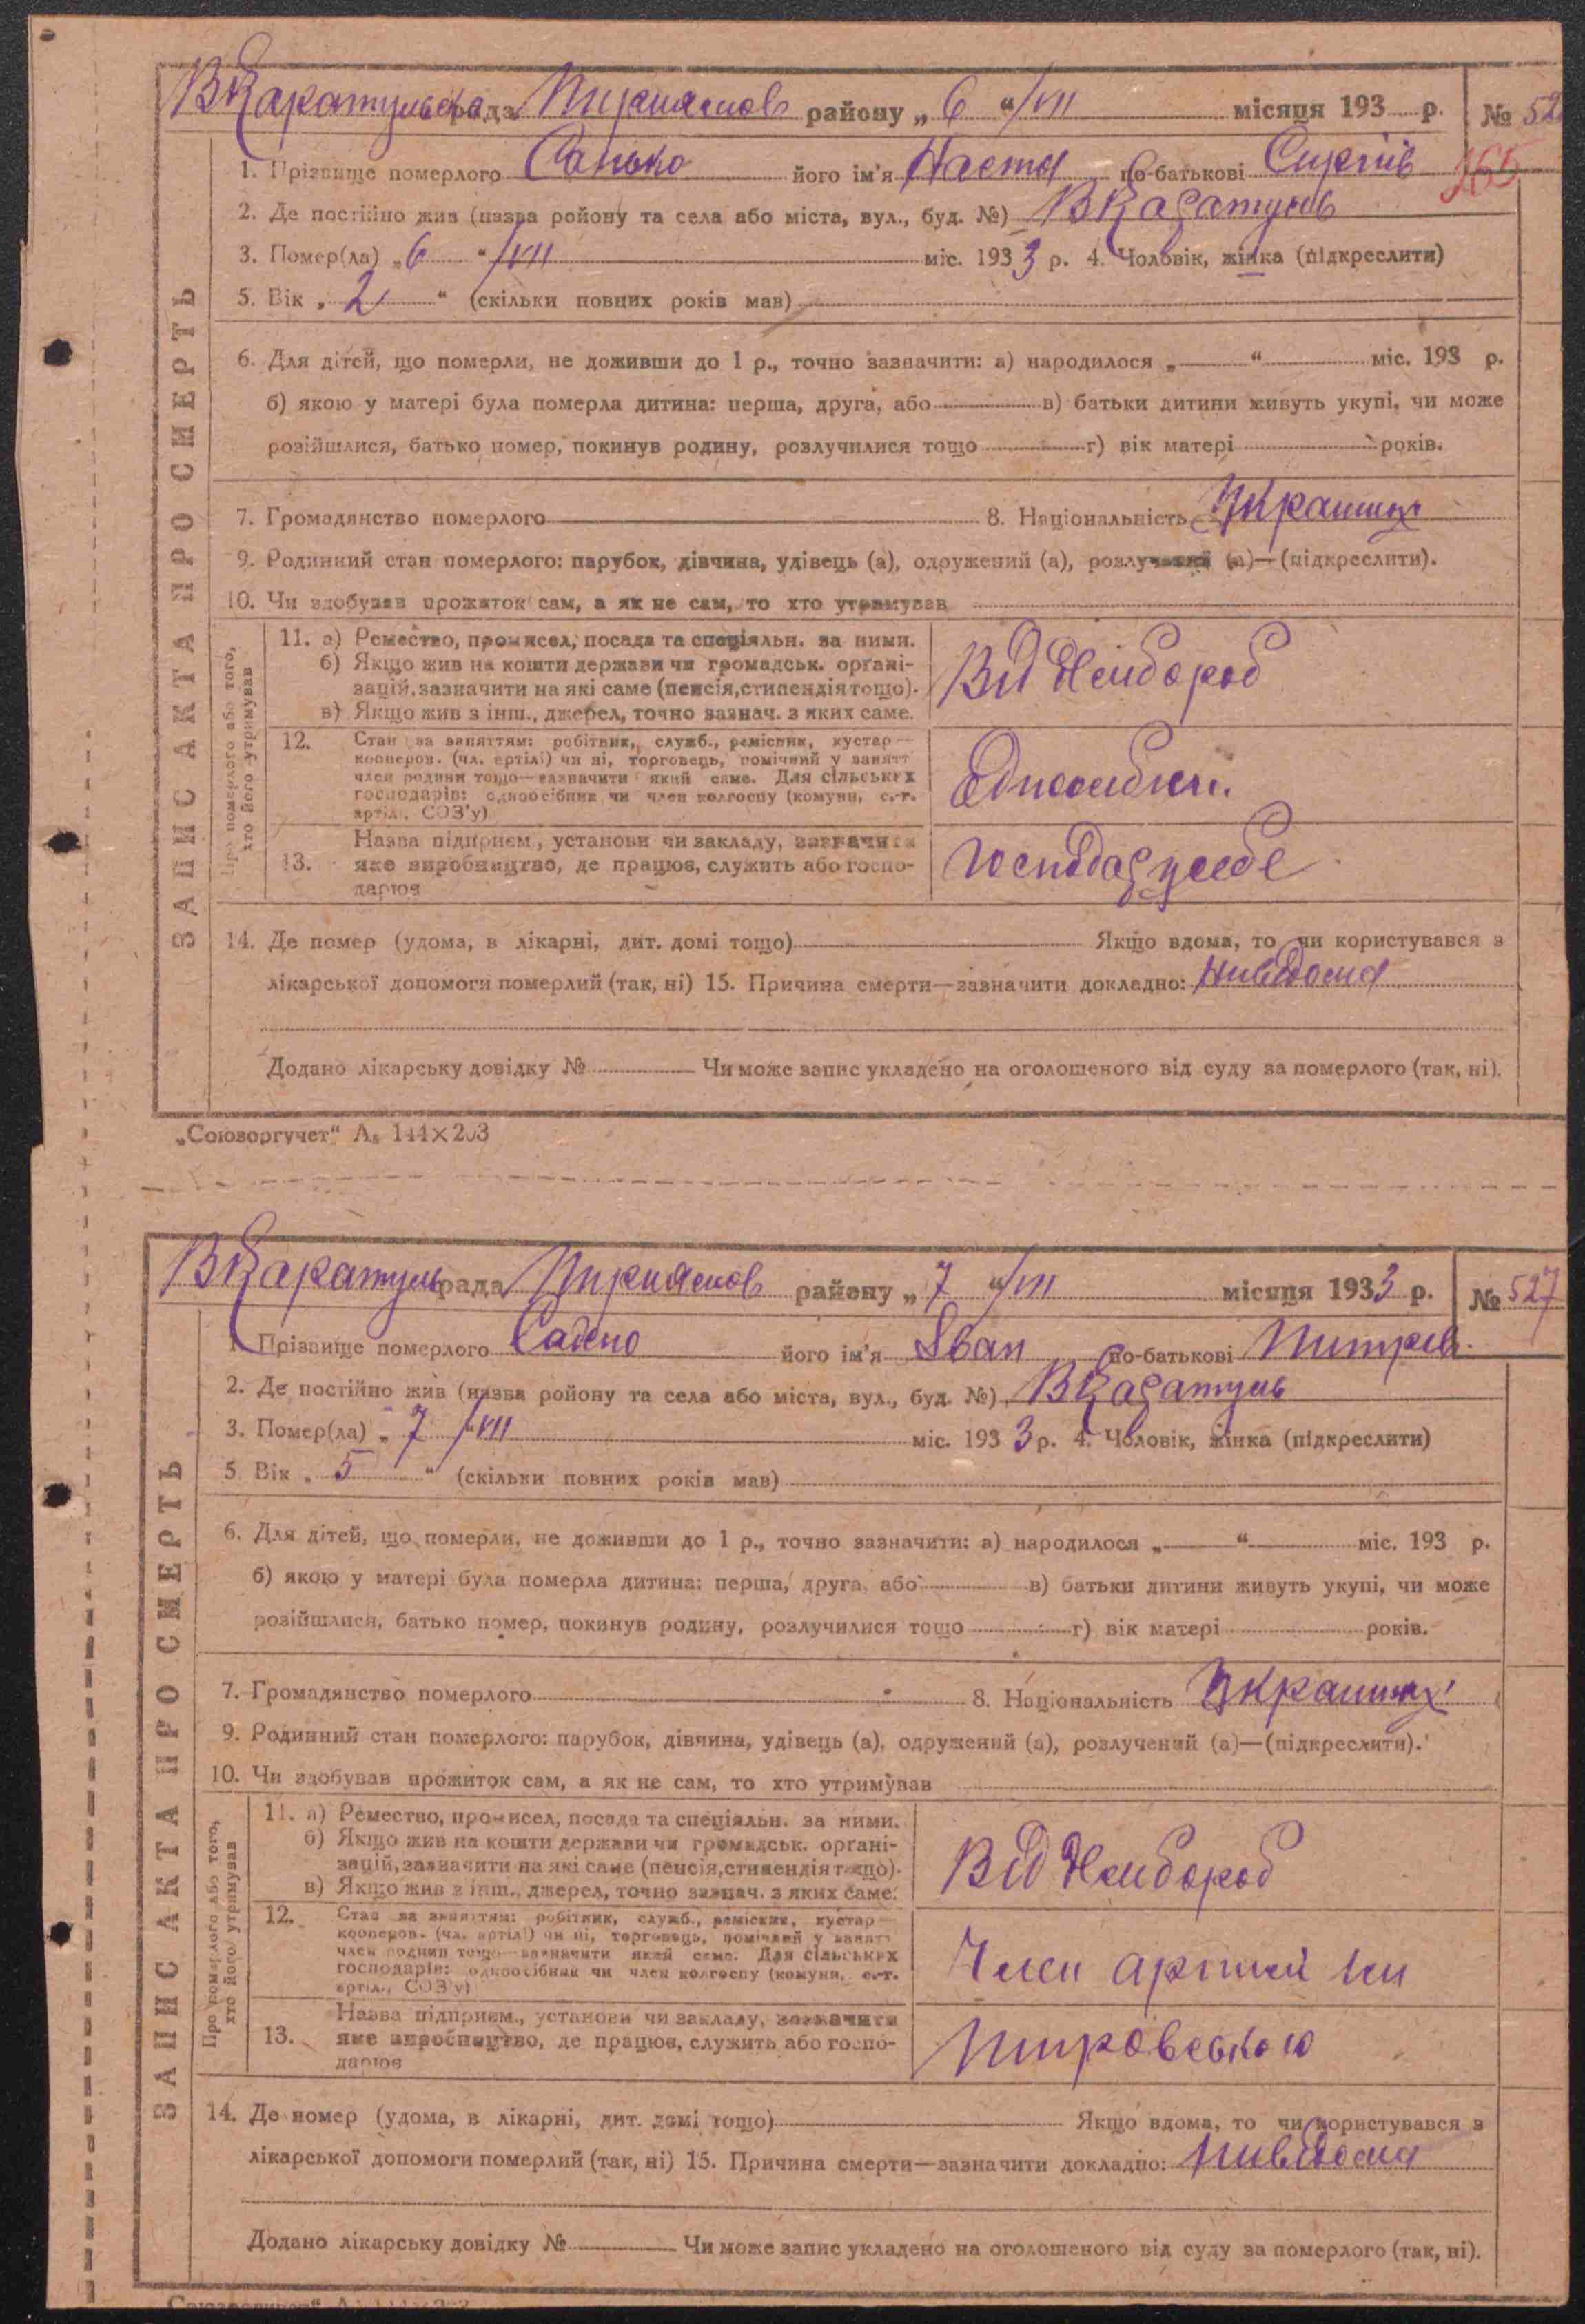 ВКаратульська рада Пиряславс району „ 6 “ /VII місяця 193 р. № 52
165
1. Прізвище померлого Санько його ім'я Настя по-батькові Сиргіїв
2. Де постійно жив (назва ройону та села або міста, вул., буд. №) ВКаратуль
3. Помер(ла) „ 6 “ /VII міс. 193 3 р. 4. Чоловік, жінка (підкреслити)
5. Вік „ 2 “ (скільки повних років мав)
6. Для дітей, що померли, не доживши до 1 р., точно зазначити: а) народилося „ “ міс. 193 р.
б) якою у матері була померла дитина: перша, друга, або в) батьки дитини живуть укупі, чи може
розійшлися, батько помер, покинув родину, розлучилися тощо г) вік матері років.
7. Громадянство померлого 8. Національність Україниц
9. Родинний стан померлого: парубок, дівчина, удівець (а), одружений (а), розлучений (а)—(підкреслити).
10. Чи здобував прожиток сам, а як не сам, то хто утримував
ЗАПИС АКТА ПРО СМЕРТЬ
Про померлого або того, хто його утримував
11. а) Ремество, промисел, посада та спеціяльн. за ними.
б) Якщо жив на кошти держави чи громадськ. органі-
зацій, зазначити на які саме (пенсія, стипендія тощо).
в) Якщо жив з інш., джерел, точно зазнач. з яких саме.
Від Хлибороб
12. Стан за заняттям: робітник, служб., ремісник, кустар—
кооперов. (чл. артілі) чи ні, торговець, помічний у занятт
член родини тощо—зазначити який саме. Для сільських
господарів: одноосібник чи член колгоспу (комуни, с.-г.
артіл., СОЗ'у)
Едноосібни.
13. Назва підприєм., установи чи закладу, зазначити
яке виробництво, де працює, служить або госпо-
дарює
Господар у себе
14. Де помер (удома, в лікарні, дит. домі тощо) Якщо вдома, то чи користувався з
лікарської допомоги померлий (так, ні) 15. Причина смерти—зазначити докладно: Нивідома
Додано лікарську довідку № Чи може запис укладено на оголошеного від суду за померлого (так, ні).
„Союзоргучет“ А₅ 144×203
ВКаратуль рада Пиряславс району „ 7 “ /VII місяця 193 3 р. № 527
1. Прізвище померлого його ім'я Іван по-батькові
2. Де постійно жив (назва ройону та села або міста, вул., буд. №) ВКаратуль
3. Помер(ла) „ 7 “ /VII міс. 193 3 р. 4. Чоловік, жінка (підкреслити)
5. Вік „ 5 “ (скільки повних років мав)
6. Для дітей, що померли, не доживши до 1 р., точно зазначити: а) народилося „ “ міс. 193 р.
б) якою у матері була померла дитина: перша, друга, або в) батьки дитини живуть укупі, чи може
розійшлися, батько помер, покинув родину, розлучилися тощо г) вік матері років.
7. Громадянство померлого 8. Національність Україниц
9. Родинний стан померлого: парубок, дівчина, удівець (а), одружений (а), розлучений (а)—(підкреслити).
10. Чи здобував прожиток сам, а як не сам, то хто утримував
ЗАПИС АКТА ПРО СМЕРТЬ
Про померлого або того, хто його утримував
11. а) Ремество, промисел, посада та спеціяльн. за ними.
б) Якщо жив на кошти держави чи громадськ. органі-
зацій, зазначити на які саме (пенсія, стипендія тощо).
в) Якщо жив з інш., джерел, точно зазнач. з яких саме.
Від Хлибороб
12. Стан за заняттям: робітник, служб., ремісник, кустар—
кооперов. (чл. артілі) чи ні, торговець, помічний у занятт
член родини тощо—зазначити який саме. Для сільських
господарів: одноосібник чи член колгоспу (комуни, с.-г.
артіл., СОЗ'у)
Член артилі им
13. Назва підприєм., установи чи закладу, зазначити
яке виробництво, де працює, служить або госпо-
дарює
Питровського
14. Де помер (удома, в лікарні, дит. домі тощо) Якщо вдома, то чи користувався з
лікарської допомоги померлий (так, ні) 15. Причина смерти—зазначити докладно: Нивідома
Додано лікарську довідку № Чи може запис укладено на оголошеного від суду за померлого (так, ні).